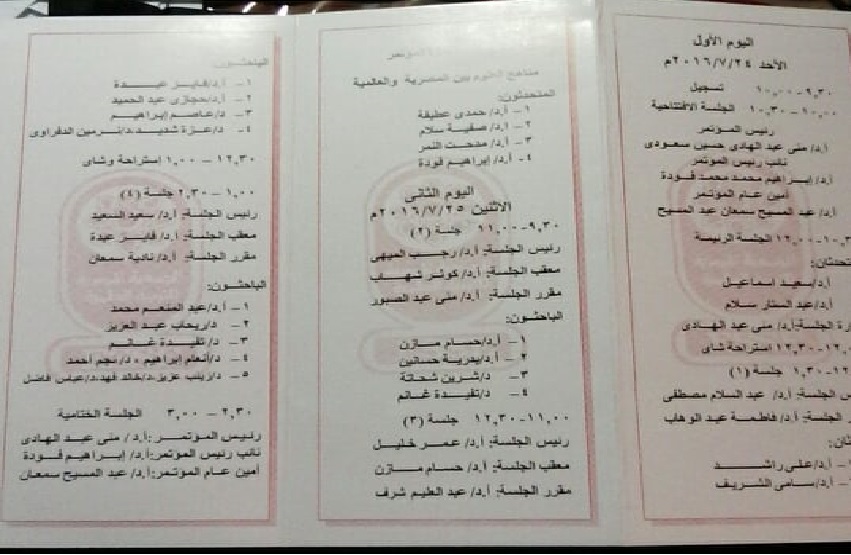 اليوم الأول
الأحد ٢٠١٦/٧/٢٤م
٩,٣٠-١٠,٠٠ تسجيل
١٠,٠٠-١٠,٣٠ الجلسة الافتتاحية
رئيس المؤتمر
أ.د/ منى عبد الهادى حسين سعودى
نائب رئيس المؤتمر
أ.د/ إبراهيم محمد محمد فودة
أمين عام المؤتمر
أ.د/ عبد المسيح سمعان عبد المسيح
١٢,٠٠ الجلسة الرئيسة
أ.د/سعيد اسماعيل
أ.د/عبد الستار سلام
الجلسة:أ.د/ منى عبد الهادى
١٢,٣٠ استراحة شاى
١,٣٠ جلسة (١)
الجلسة: أ.د/ عبد السلام مصطفى
الجلسة: أ.د/ فاطمة عبد الوهاب
أ.د/على راشد
أ.د/سامى الشريف
مناهج العلوم بين المصرية والعالمية
المتحدثون:
١- أ.د/ حمدى عطيفة
٢- أ.د/ صفية سلام
٣- أ.د/ مدحت النمر
٤- أ.د/ إبراهيم فودة
اليوم الثانى
الاثنين ٢٠١٦/٧/٢٥م
٩,٣٠-١١,٠٠ جلسة (٢)
رئيس الجلسة: أ.د/ رجب الميهى
معقب الجلسة: أ.د/ كوثر شهاب
مقرر الجلسة: أ.د/ منى عبد الصبور
الباحثون:
١- أ.د/حسام مازن
٢- أ.د/بدرية حسانين
٣- د/شرين شحاتة
٤- د/تفيدة غانم
١١,٠٠-١٢,٣٠ جلسة (٣)
رئيس الجلسة: أ.د/ عمر خليل
معقب الجلسة: أ.د/ حسام مازن
مقرر الجلسة: أ.د/ عبد العليم شرف
الباحثون:
١- أ.د/فايز عبدة
٢- أ.د/حجازى عبد الحميد
٣- د/عاصم إبراهيم
٤- د/عزة شديد،د/نرمين الدفراوى
١٢,٣٠-١,٠٠ إستراحة وشاى
١,٠٠-٢,٣٠ جلسة (٤)
رئيس الجلسة: أ.د/ سعيد السعيد
معقب الجلسة: أ.د/ فايز عبدة
مقرر الجلسة: أ.د/ نادية سمعان
الباحثون:
١- أ.د/عبد المنعم محمد
٢- د/ريحاب عبد العزيز
٣- د/ تفيدة غانم
٤- د/أنعام إبراهيم ، د/ نجم أحمد
٥- د/زينب عزيز،د/خالد فهد،د/عباس فاضل
٢,٣٠-٣,٠٠ الجلسة الختامية
رئيس المؤتمر:أ.د/ منى عبد الهادى
نائب رئيس المؤتمر:أ.د/ إبراهيم فودة
أمين عام المؤتمر:أ.د/ عبد المسيح سمعان